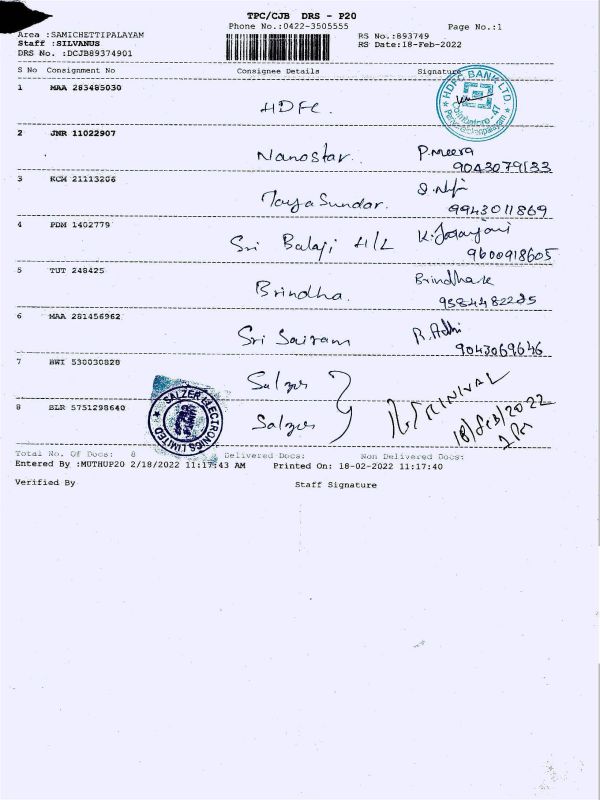 TPC/CJB DRS - P20
Phone No.:0422-3505555
Page No.:1
Area :SAMICHETTIPALAYAM
RS No.:893749
Staff :SILVANUS
RS Date:18-Feb-2022
DRS No. :DCJB89374901
S No Consignment No Consignee Details Signature
HDFC BANK LTD.
1 MAA 283485030
HDFC.
2 JNR 11022907
Nanostar. P.Meera
9043079133
3 KCM 21113206
Sundar.
9943011869
4 PDM 1402779
Sri Balaji H/L
9600918605
5 TUT 248425
Brindha. Brindha
6 MAA 281456962
Sri Sairam R.Adhi
9043069646
7 BWI 530030828
Salzer
8 BLR 5751298640
Salzer
18/Feb/2022
SALZER ELECTRONICS LIMITED
Total No. Of Docs: 8 Delivered Docs: Non Delivered Docs:
Entered By :MUTHUP20 2/18/2022 11:17:43 AM Printed On: 18-02-2022 11:17:40
Verified By Staff Signature